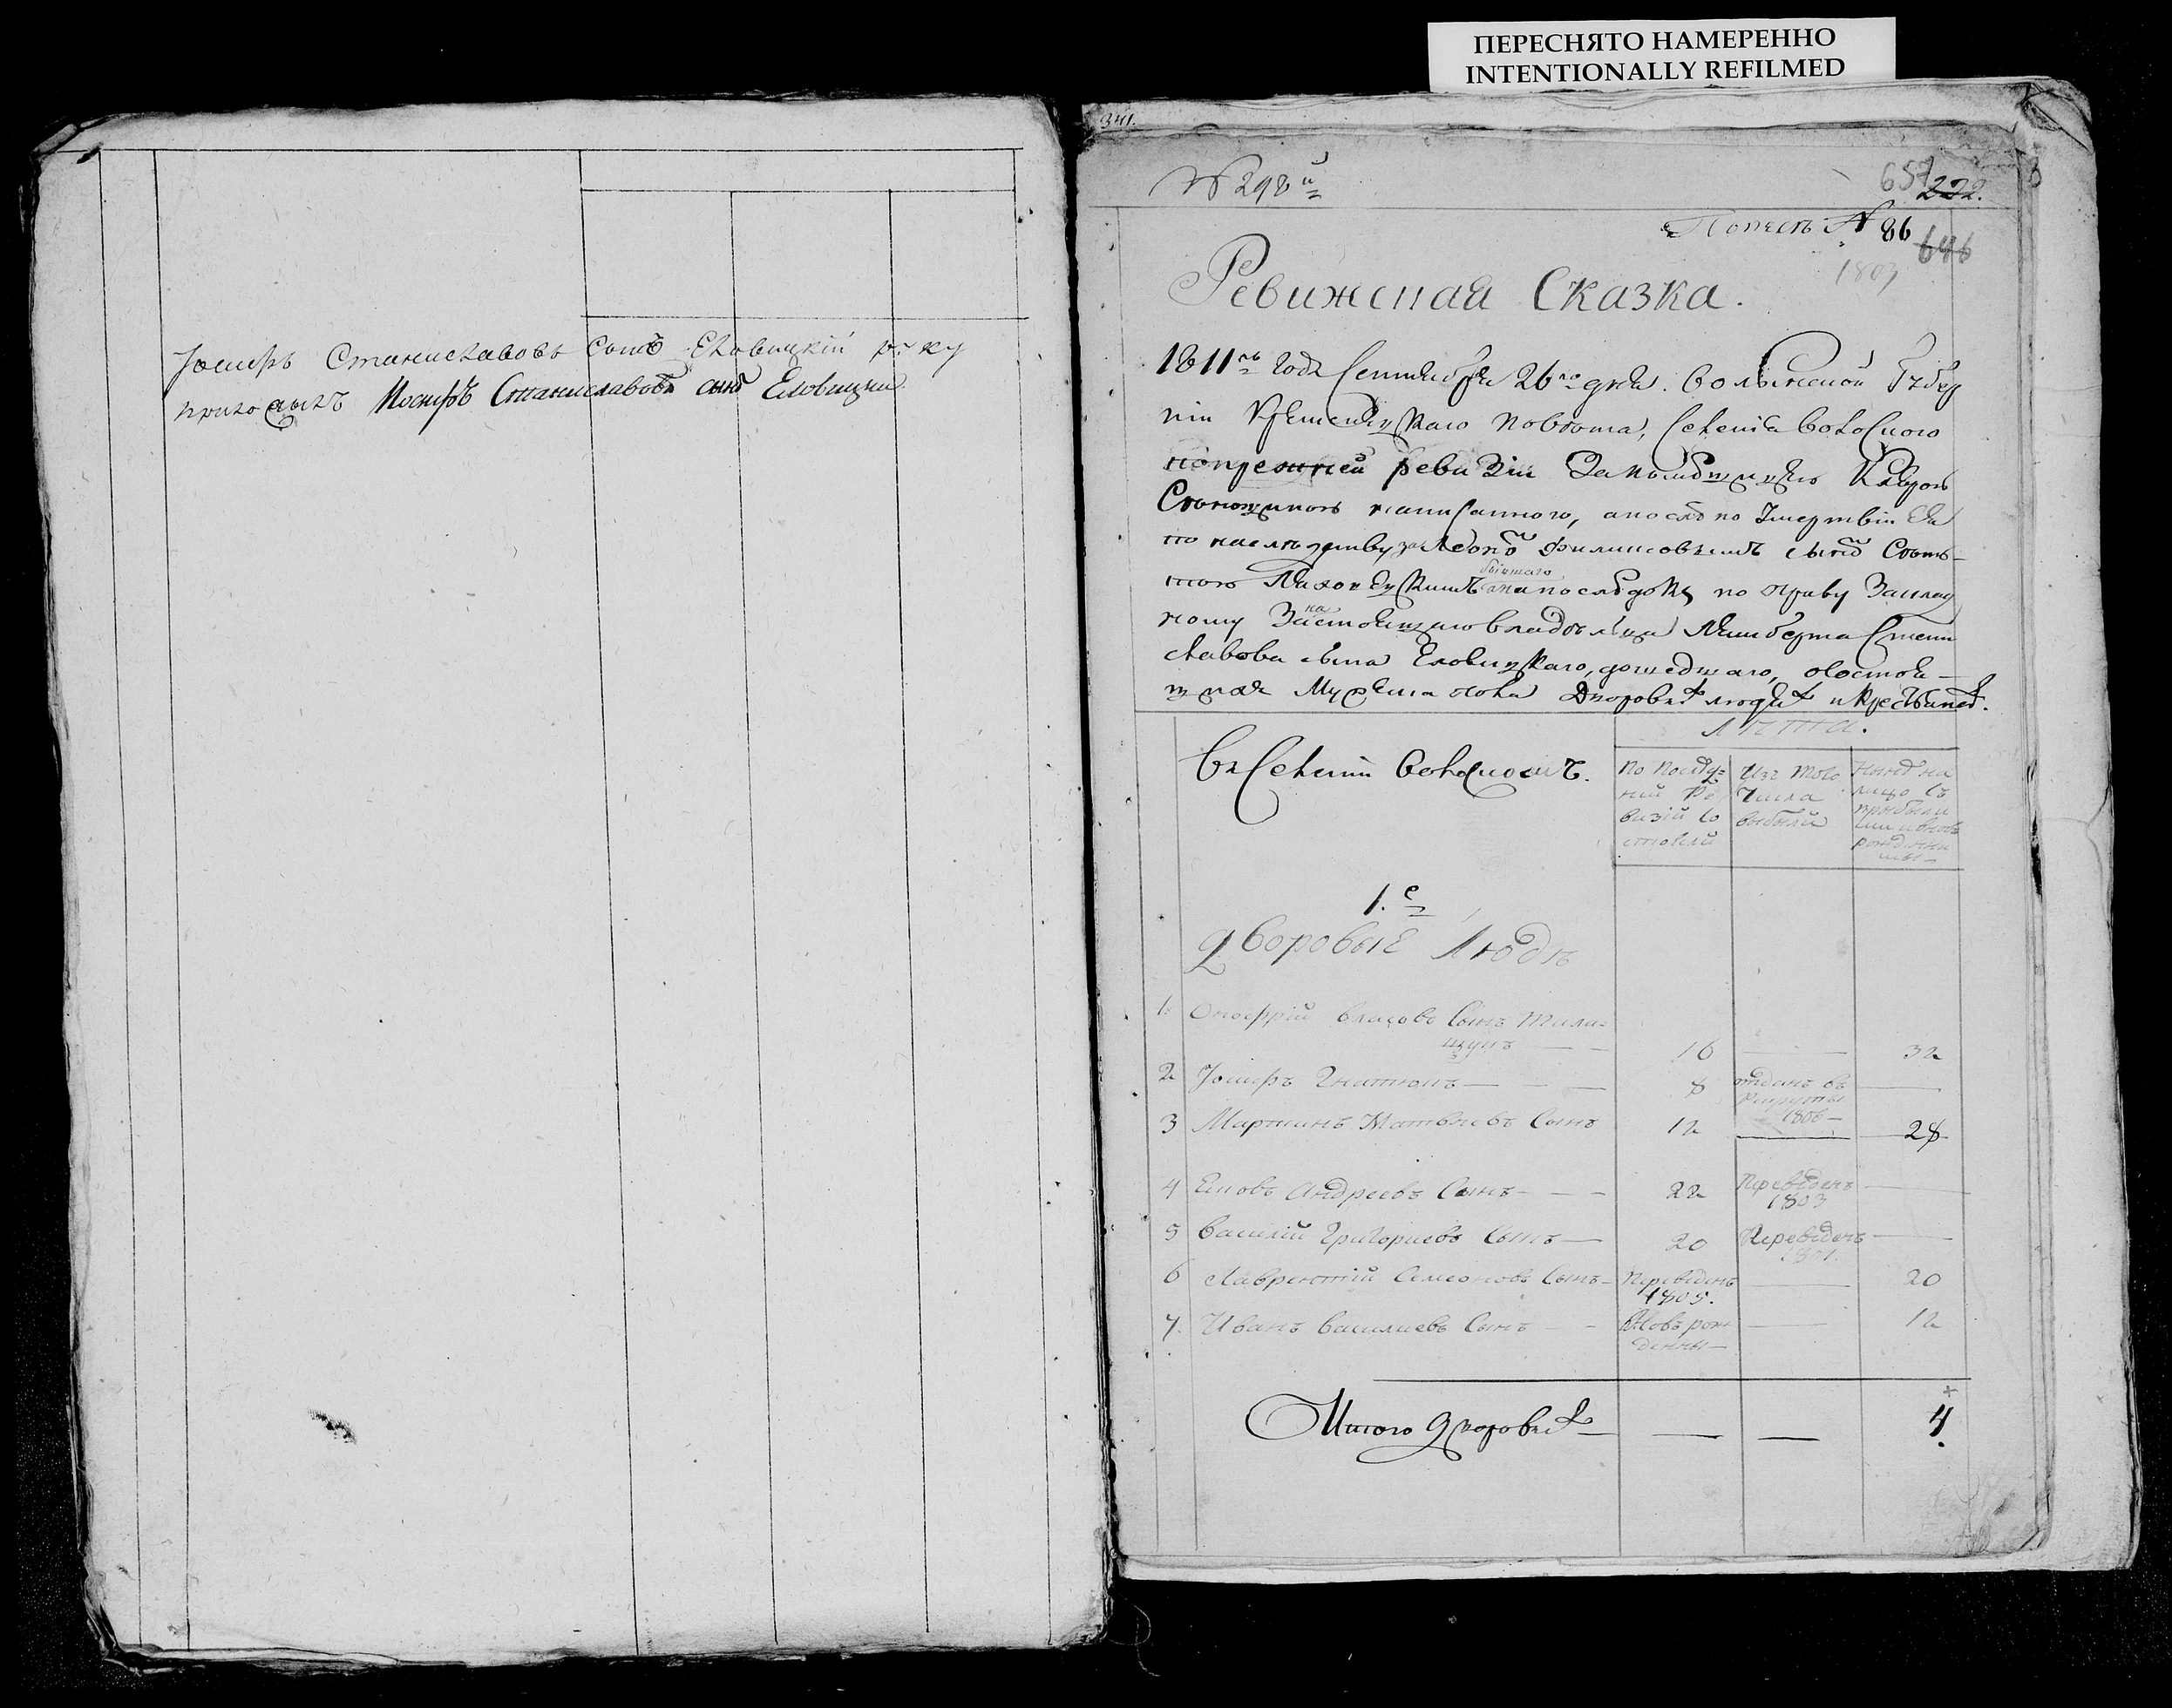 ПЕРЕСНЯТО НАМЕРЕННО
INTENTIONALLY REFILMED
Іосифъ Станиславовъ сынъ Еловицкій руку
приложилъ Иосифъ Станиславовъ сынъ Еловицки
341.
№ 298й
657
222.
№ 86
646
1803
Ревижская Сказка.
1811го года Сентября 26го дня. Волынской Губер
ніи Кременецкаго Повѣта, Селенія Волосного
попрежней ревизіи За
написанного, а по
по наслѣдству за Филиповымъ сыномъ
бывшаго
напослѣдокъ по праву Заклад
ному настоящаго владѣльца Ламберта Стани
славова сына Еловицкаго, дошедшаго, осостоя-
щихъ Мужеска пола Дворовыхъ людей и Крестьянъ.
Лѣта.
Въ Селеніи Волосномъ.
По послѣд-
ней Ре
визіи со
стояли
Изъ того
Числа
выбыли
Нынѣ на
лицо съ
прибыли
ми и вновь
рожденны
ми
1.е
дворовые Людѣ
1. Онофрій Власовъ Сынъ
16 — 32
2 Іосифъ Игнатюкъ — 8 отданъ въ —
рекруты
1806
3 Мартинъ Матвѣевъ Сынъ 12 — 28
4 Андреевъ Сынъ — 22 Переведенъ —
1803
5 Василій Григориевъ Сынъ — 20 Переведенъ —
1801.
6 Лаврентій Семеоновъ Сынъ — Переведенъ — 20
1805.
7. Иванъ Василиевъ Сынъ — Вновь рож — 12
денны —
Итого дворовыхъ — — 4